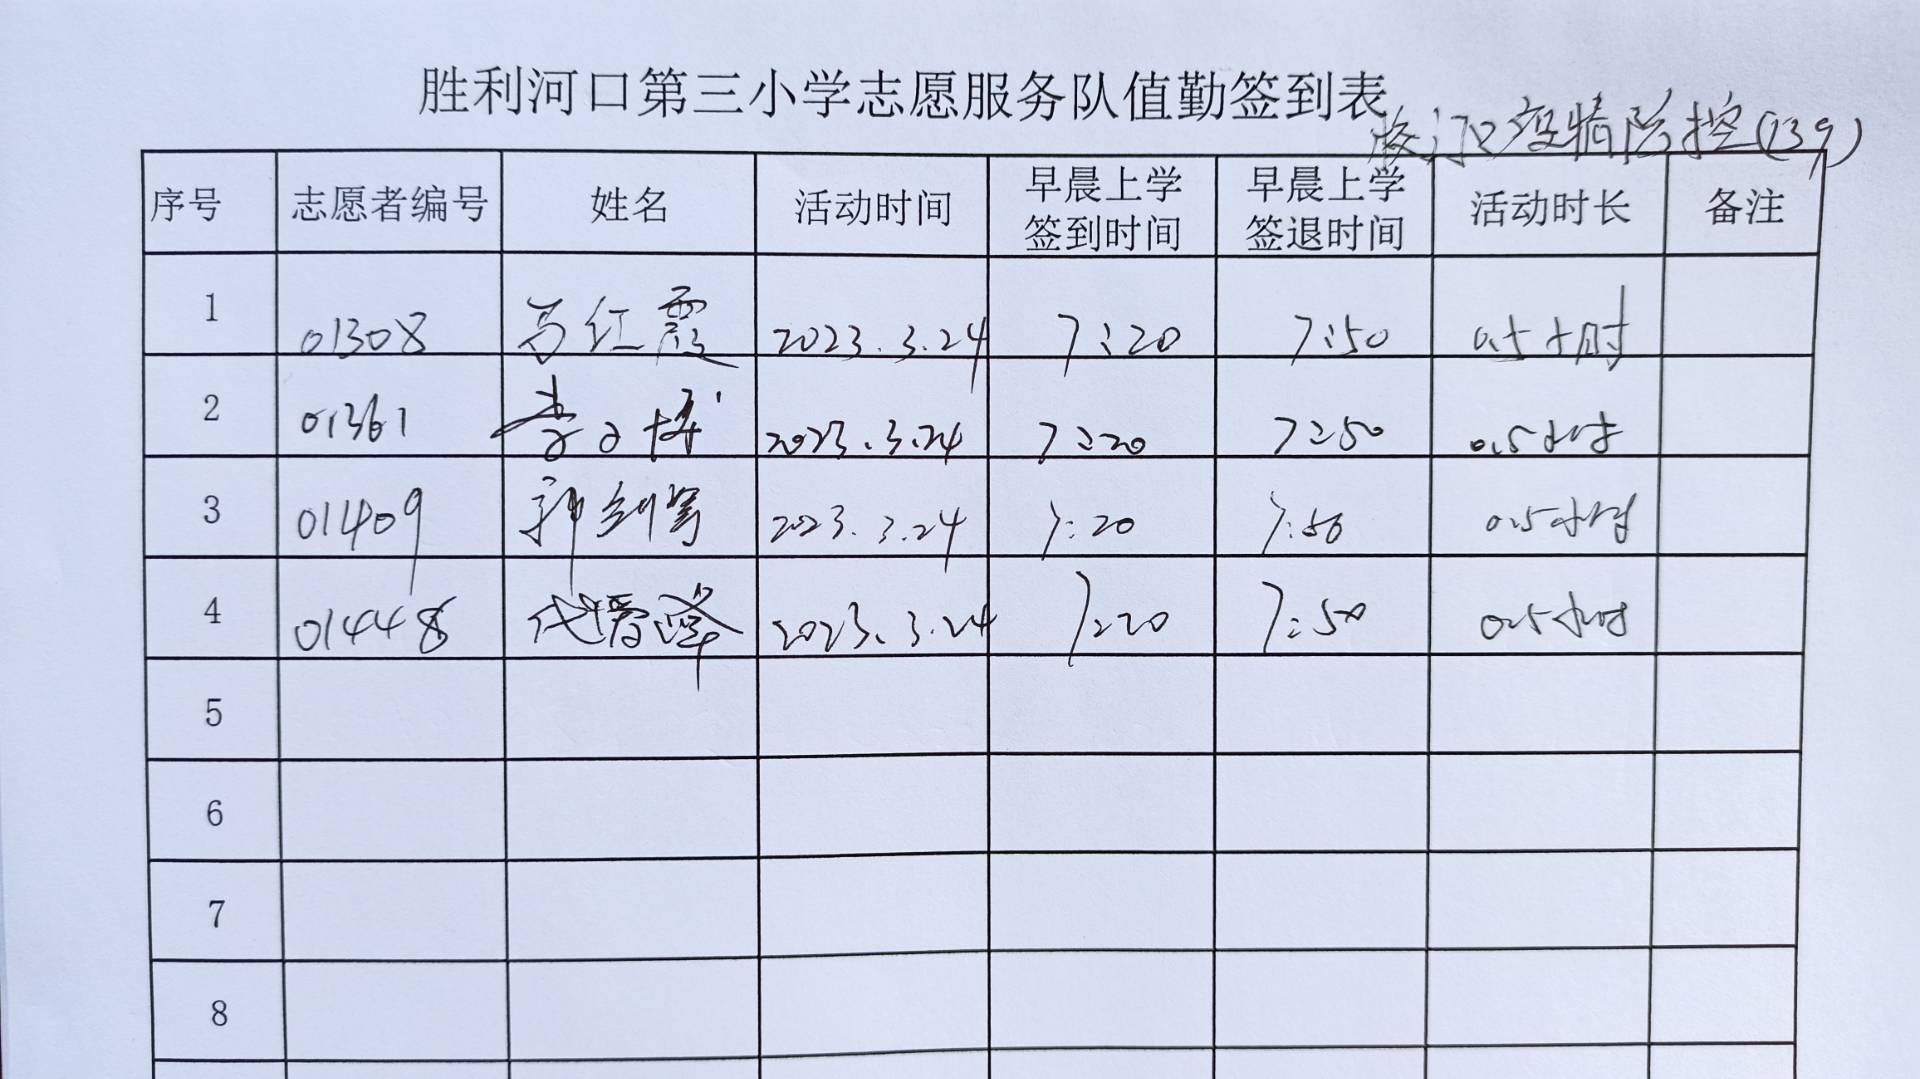 胜利河口第三小学志愿服务队值勤签到表
校门口疫情防控(139)
序号 志愿者编号 姓名 活动时间 早晨上学签到时间 早晨上学签退时间 活动时长 备注
1 01308 马红霞 2023.3.24 7:20 7:50 0.5小时
2 01361 李文博 2023.3.24 7:20 7:50 0.5小时
3 01409 2023.3.24 7:20 7:50 0.5小时
4 01448 2023.3.24 7:20 7:50 0.5小时
5
6
7
8